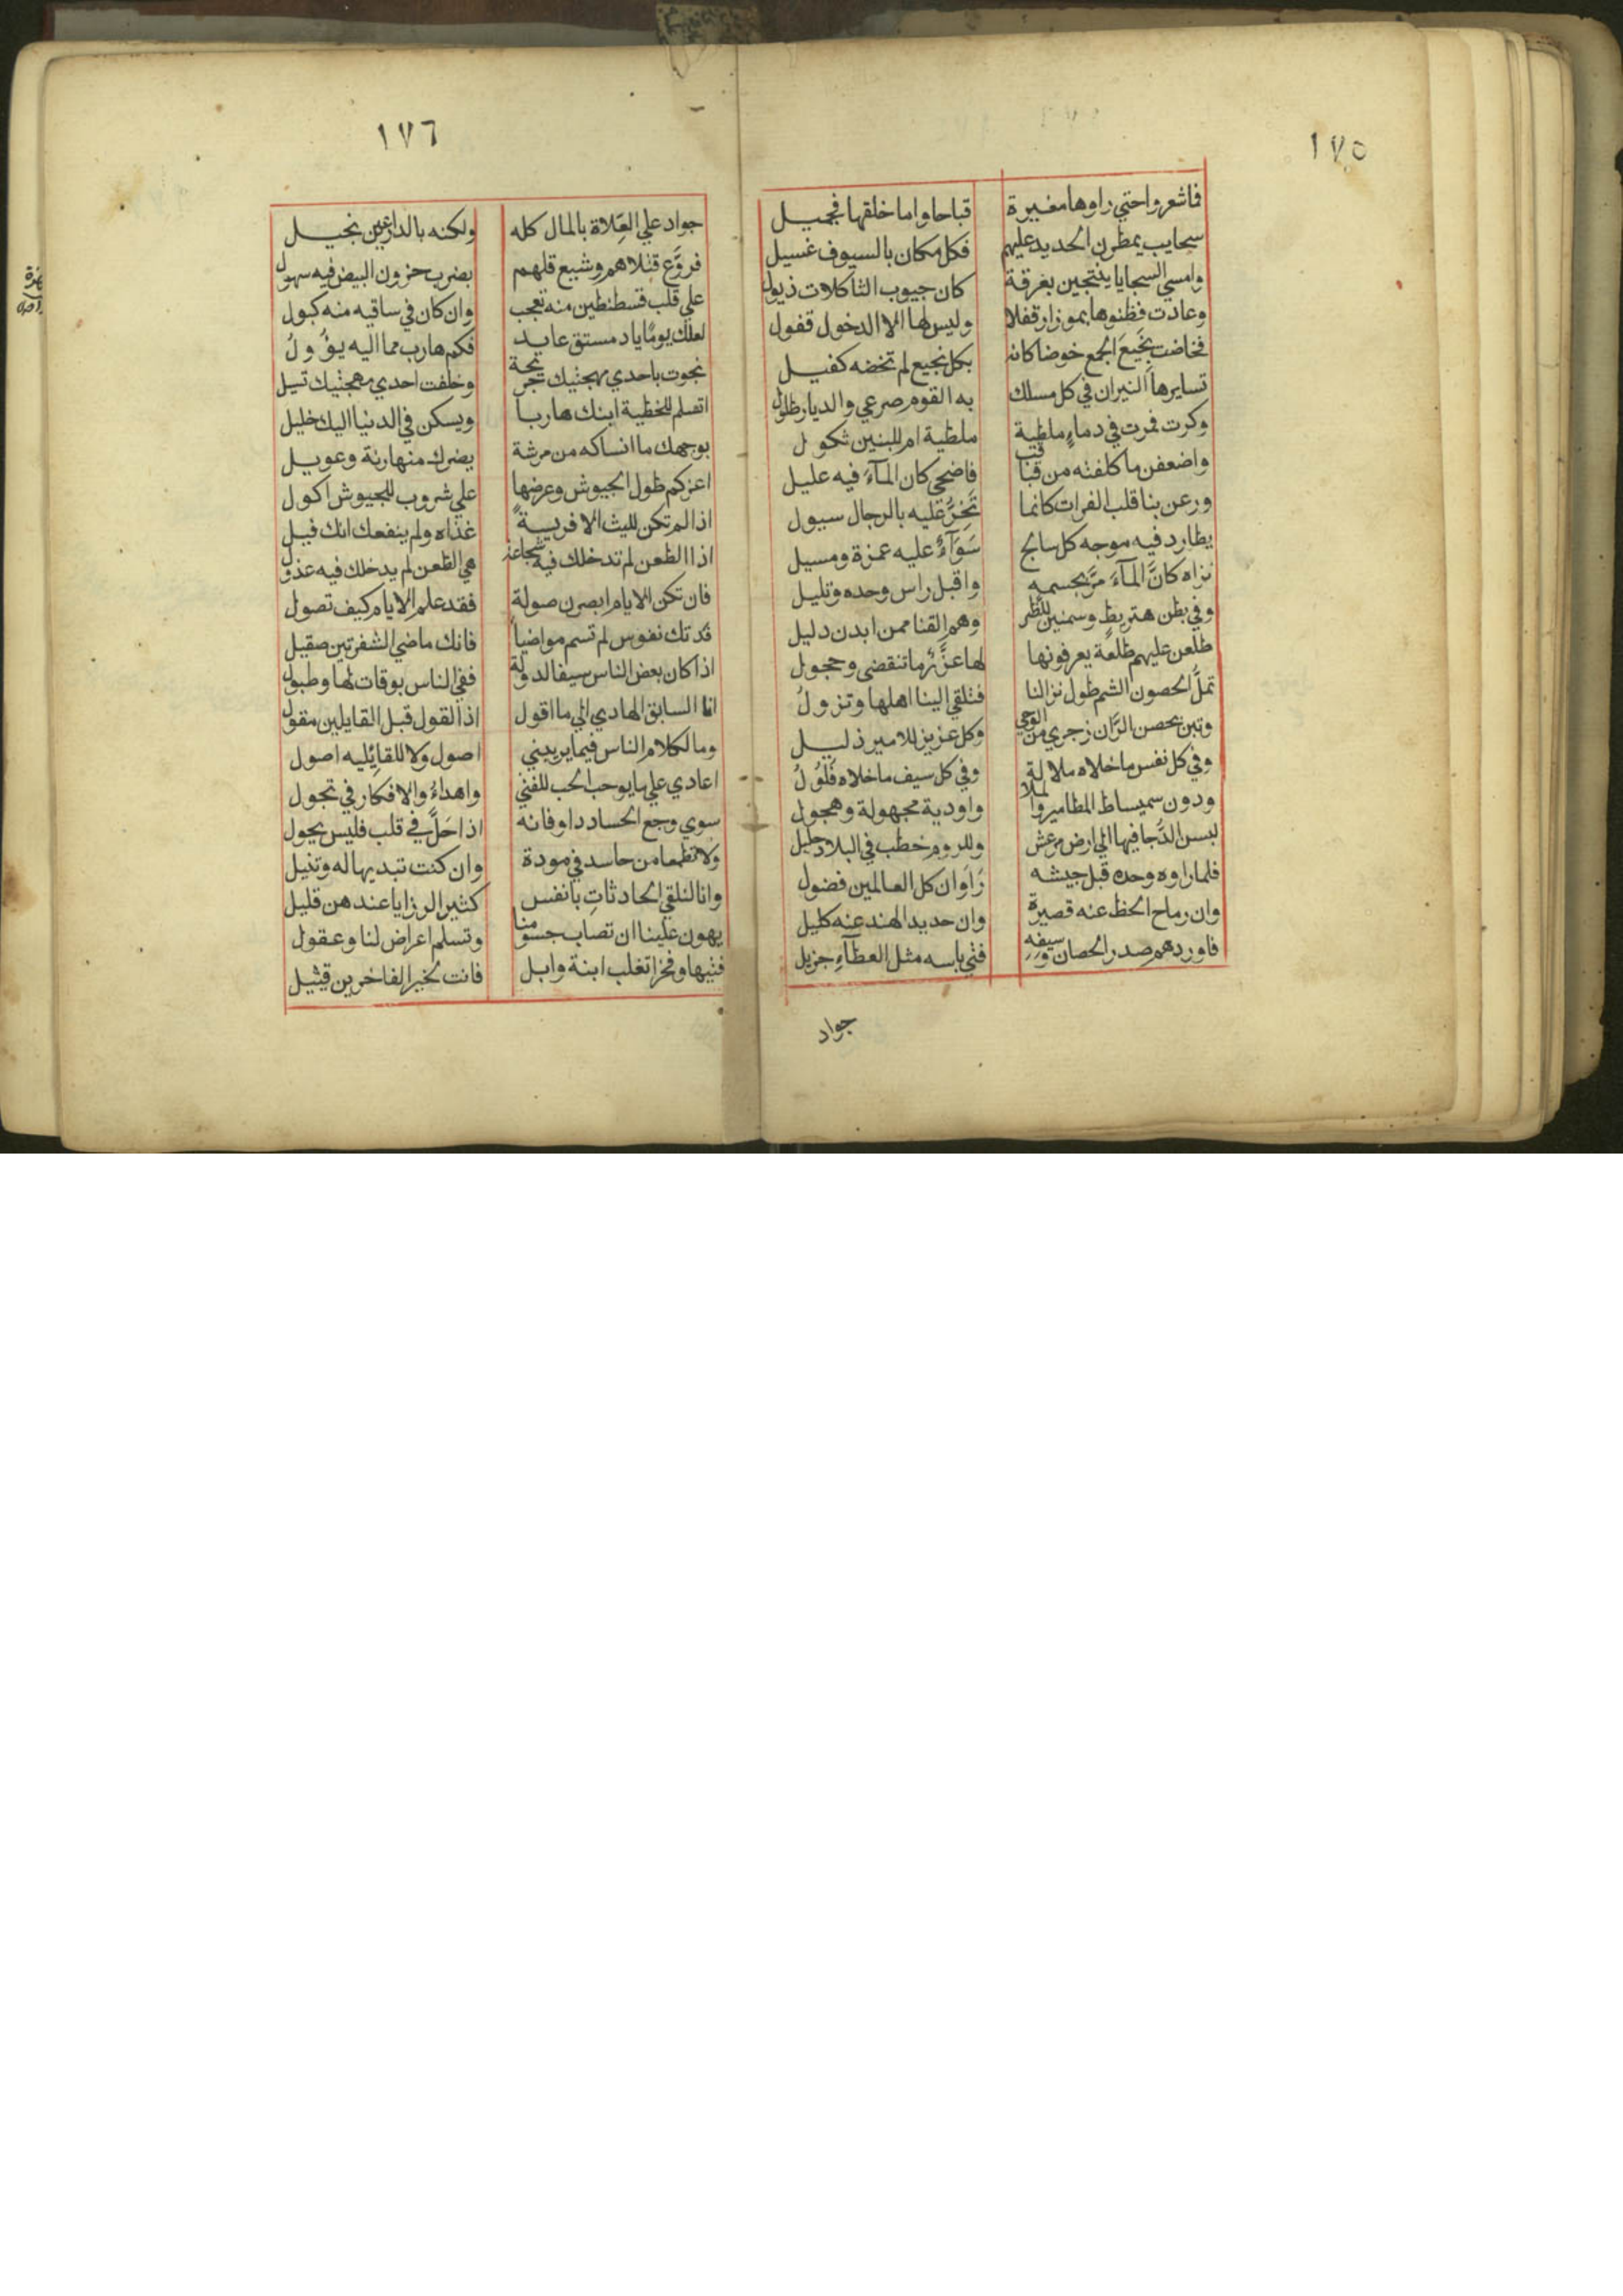 ١٧٥
فاشعروا حتي راوها مغيرة قباحا واما خلقها فجميل
سحايب يمطرن الحديد عليهم فكل مكان بالسيوف غسيل
وامسي السجايا ينتحبن بغرقة كان جيوب الثاكلات ذيول
وعادت فظنوها بموزار قفلا وليس لها الا الدخول قفول
فخاضت نجيع الجمع خوضا كانه بكل نجيع لم تخضه كفيل
تسايرها النيران في كل مسلك به القوم صرعي والديار طلول
وكرت فمرت في دماء ملطية ملطية ام للبنين ثكول
واضعفن ما كلفنه من قباقب فاضحي كان المآء فيه عليل
ورعن بنا قلب الفرات كانما تخر عليه بالرجال سيول
يطارد فيه موجه كل سابح سوآء عليه غمزة ومسيل
تراه كان المآء مر بجسمه واقبل راس وحده وتليل
وفي بطن هنريط وسمنين للظبي وهم القنا ممن ابدن دليل
طلعن عليهم طلعة يعرفونها لها غرر ما تنقضي وحجول
تمل الحصون الشم طول نزالنا فتلقي الينا اهلها وتزول
وتبن بحصن الران زجري من الوجي وكل عزيز للامير ذليل
وفي كل نفس ما خلاه ملالة وفي كل سيف ما خلاه فلول
ودون سميساط المطامير والملا واودية مجهولة وهجول
لبسن الدجا فيها الي ارض مرعش وللروم خطب في البلاد جليل
فلما راوه وحده قبل جيشه راوا ان كل العالمين فضول
وان رماح الخط عنه قصيرة وان حديد الهند عنه كليل
فاوردهم صدر الحصان وسيفه فتي باسه مثل العطآء جزيل
جواد
١٧٦
جواد علي العلاة بالمال كله ولكنه بالدارعين بخيل
فروع قتلاهم وشيع قلهم بضرب حزون البيض فيه سهول
علي قلب قسطنطين منه تعجب وان كان في ساقيه منه كبول
لعلك يوما يا دمستق عايد فكم هارب مما اليه يؤول
نجوت باحدي مهجتيك جريحة وخلفت احدي مهجتيك تسيل
اتسلم للخطية ابنك هاربا ويسكن في الدنيا اليك خليل
بوجهك ما انساكه من مرشة يضرك منها رنة وعويل
اغركم طول الجيوش وعرضها علي شروب للجيوش اكول
اذا لم تكن لليث الا فريسة غذاه ولم ينفعك انك فيل
اذا الطعن لم تدخلك فيه شجاعة هي الطعن لم يدخلك فيه عذول
فان تكن الايام ابصرن صولة فقد علم الايام كيف تصول
فدتك نفوس لم تسم مواضيا فانك ماضي الشفرتين صقيل
اذا كان بعض الناس سيفا لدولة ففي الناس بوقات لها وطبول
انا السابق الهادي الي ما اقول اذ القول قبل القايلين مقول
وما لكلام الناس فيما يريبني اصول ولا للقائليه اصول
اعادي علي ما يوجب الحب للفتي واهداء والافكار في تجول
سوي وجع الحساد داو فانه اذا حل في قلب فليس يحول
ولا تطمعا من حاسد في مودة وان كنت تبديها له وتنيل
وانا لنلقي الحادثات بانفس كثير الرزايا عندهن قليل
يهون علينا ان تصاب جسومنا وتسلم اعراض لنا وعقول
فتيها وفخرا تغلب ابنة وايل فانت لخير الفاخرين قبيل